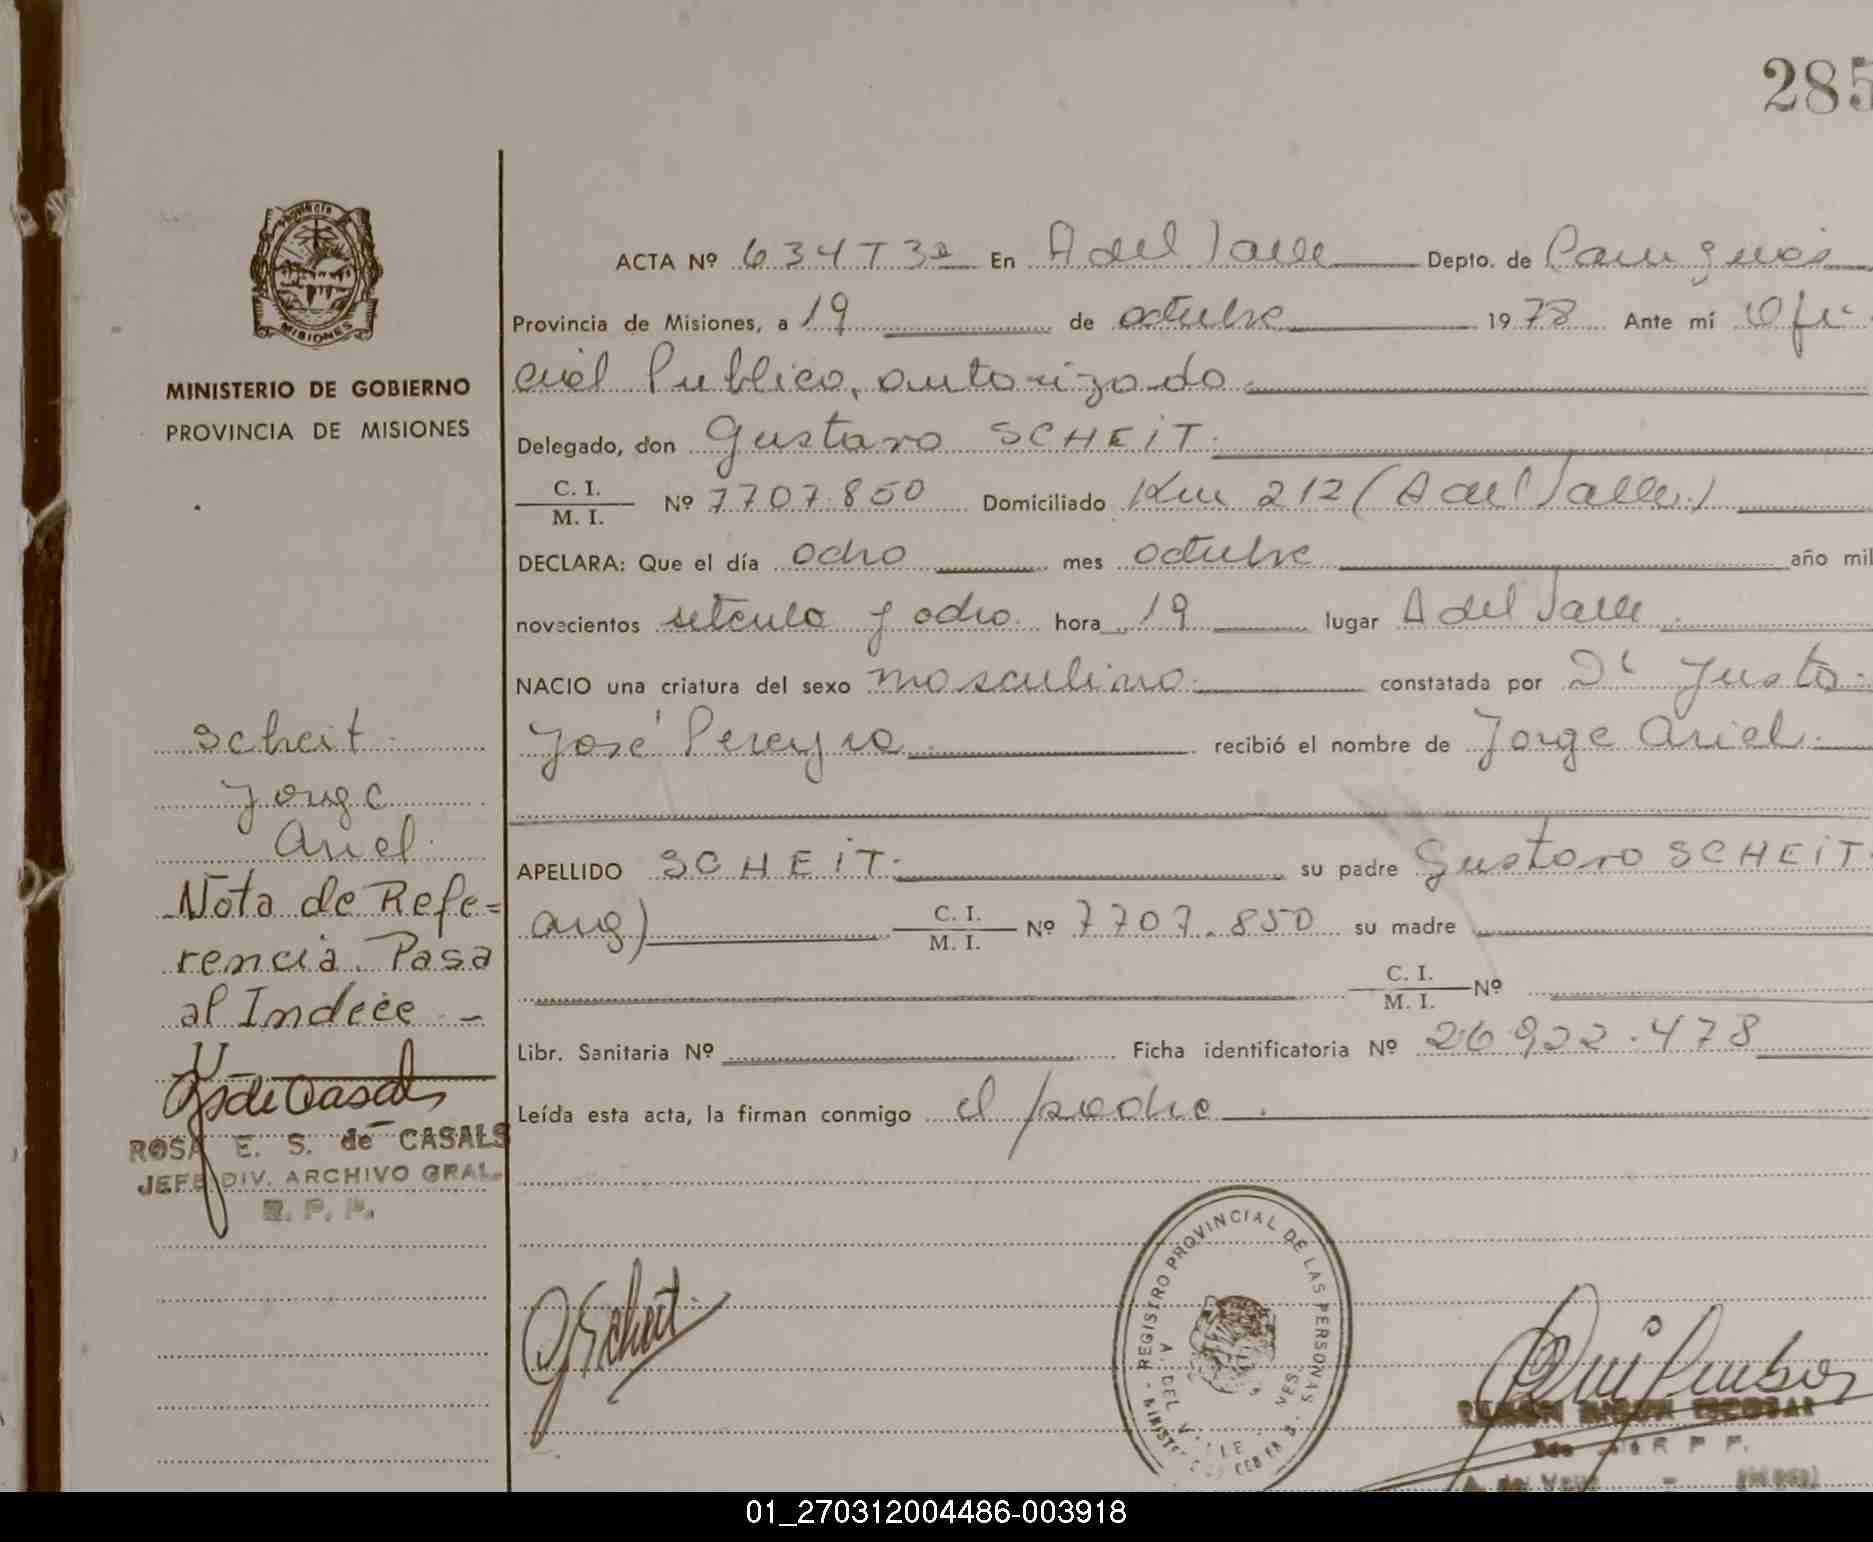 285
Provincia
MISIONES
MINISTERIO DE GOBIERNO
PROVINCIA DE MISIONES
ACTA Nº 634T3ª En A del Valle Depto. de Cainguás
Provincia de Misiones, a 19 de octubre 1978 Ante mí Ofi-
cial Publico, autorizado.
Delegado, don Gustavo SCHEIT.
C. I.
M. I. Nº 7707.850 Domiciliado Km 212 (A del Valle.)
DECLARA: Que el día ocho mes octubre año mil
novecientos setenta y ocho. hora 19 lugar A del Valle
NACIO una criatura del sexo masculino. constatada por Dr Justo
José Pereyra recibió el nombre de Jorge Ariel.
APELLIDO SCHEIT. su padre Gustavo SCHEIT.
arg) C. I.
M. I. Nº 7707.850 su madre
C. I.
M. I. Nº
Libr. Sanitaria Nº Ficha identificatoria Nº 26922.478
Leída esta acta, la firman conmigo el padre.
Scheit
Jorge
Ariel.
Nota de Refe=
rencia. Pasa
al Indice -
ROSA E. S. de CASALS
JEFE DIV. ARCHIVO GRAL.
R. P. P.
GScheit
REGISTRO PROVINCIAL DE LAS PERSONAS
A. DEL VALLE
R P P.
A. del Valle
01_270312004486-003918